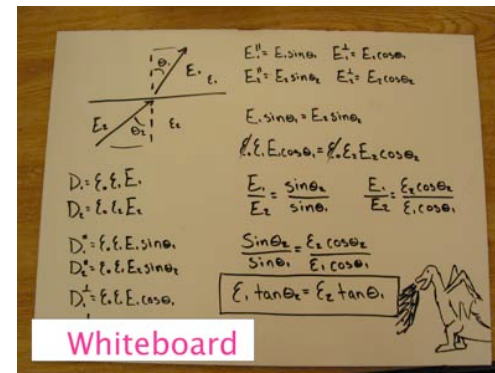 θ₁ E₁ ε₁
E₂ θ₂ ε₂
D₁ = ε₀ε₁E₁
D₂ = ε₀ε₂E₂
D₁" = ε₀ε₁E₁sinθ₁
D₂" = ε₀ε₂E₂sinθ₂
D₁⊥ = ε₀ε₁E₁cosθ₁
E₁" = E₁sinθ₁ E₁⊥ = E₁cosθ₁
E₂" = E₂sinθ₂ E₂⊥ = E₂cosθ₂
E₁sinθ₁ = E₂sinθ₂
ε₀ε₁E₁cosθ₁ = ε₀ε₂E₂cosθ₂
E₁/E₂ = sinθ₂/sinθ₁ E₁/E₂ = ε₂cosθ₂/ε₁cosθ₁
Sinθ₂/sinθ₁ = ε₂cosθ₂/ε₁cosθ₁
ε₁tanθ₂ = ε₂tanθ₁
Whiteboard